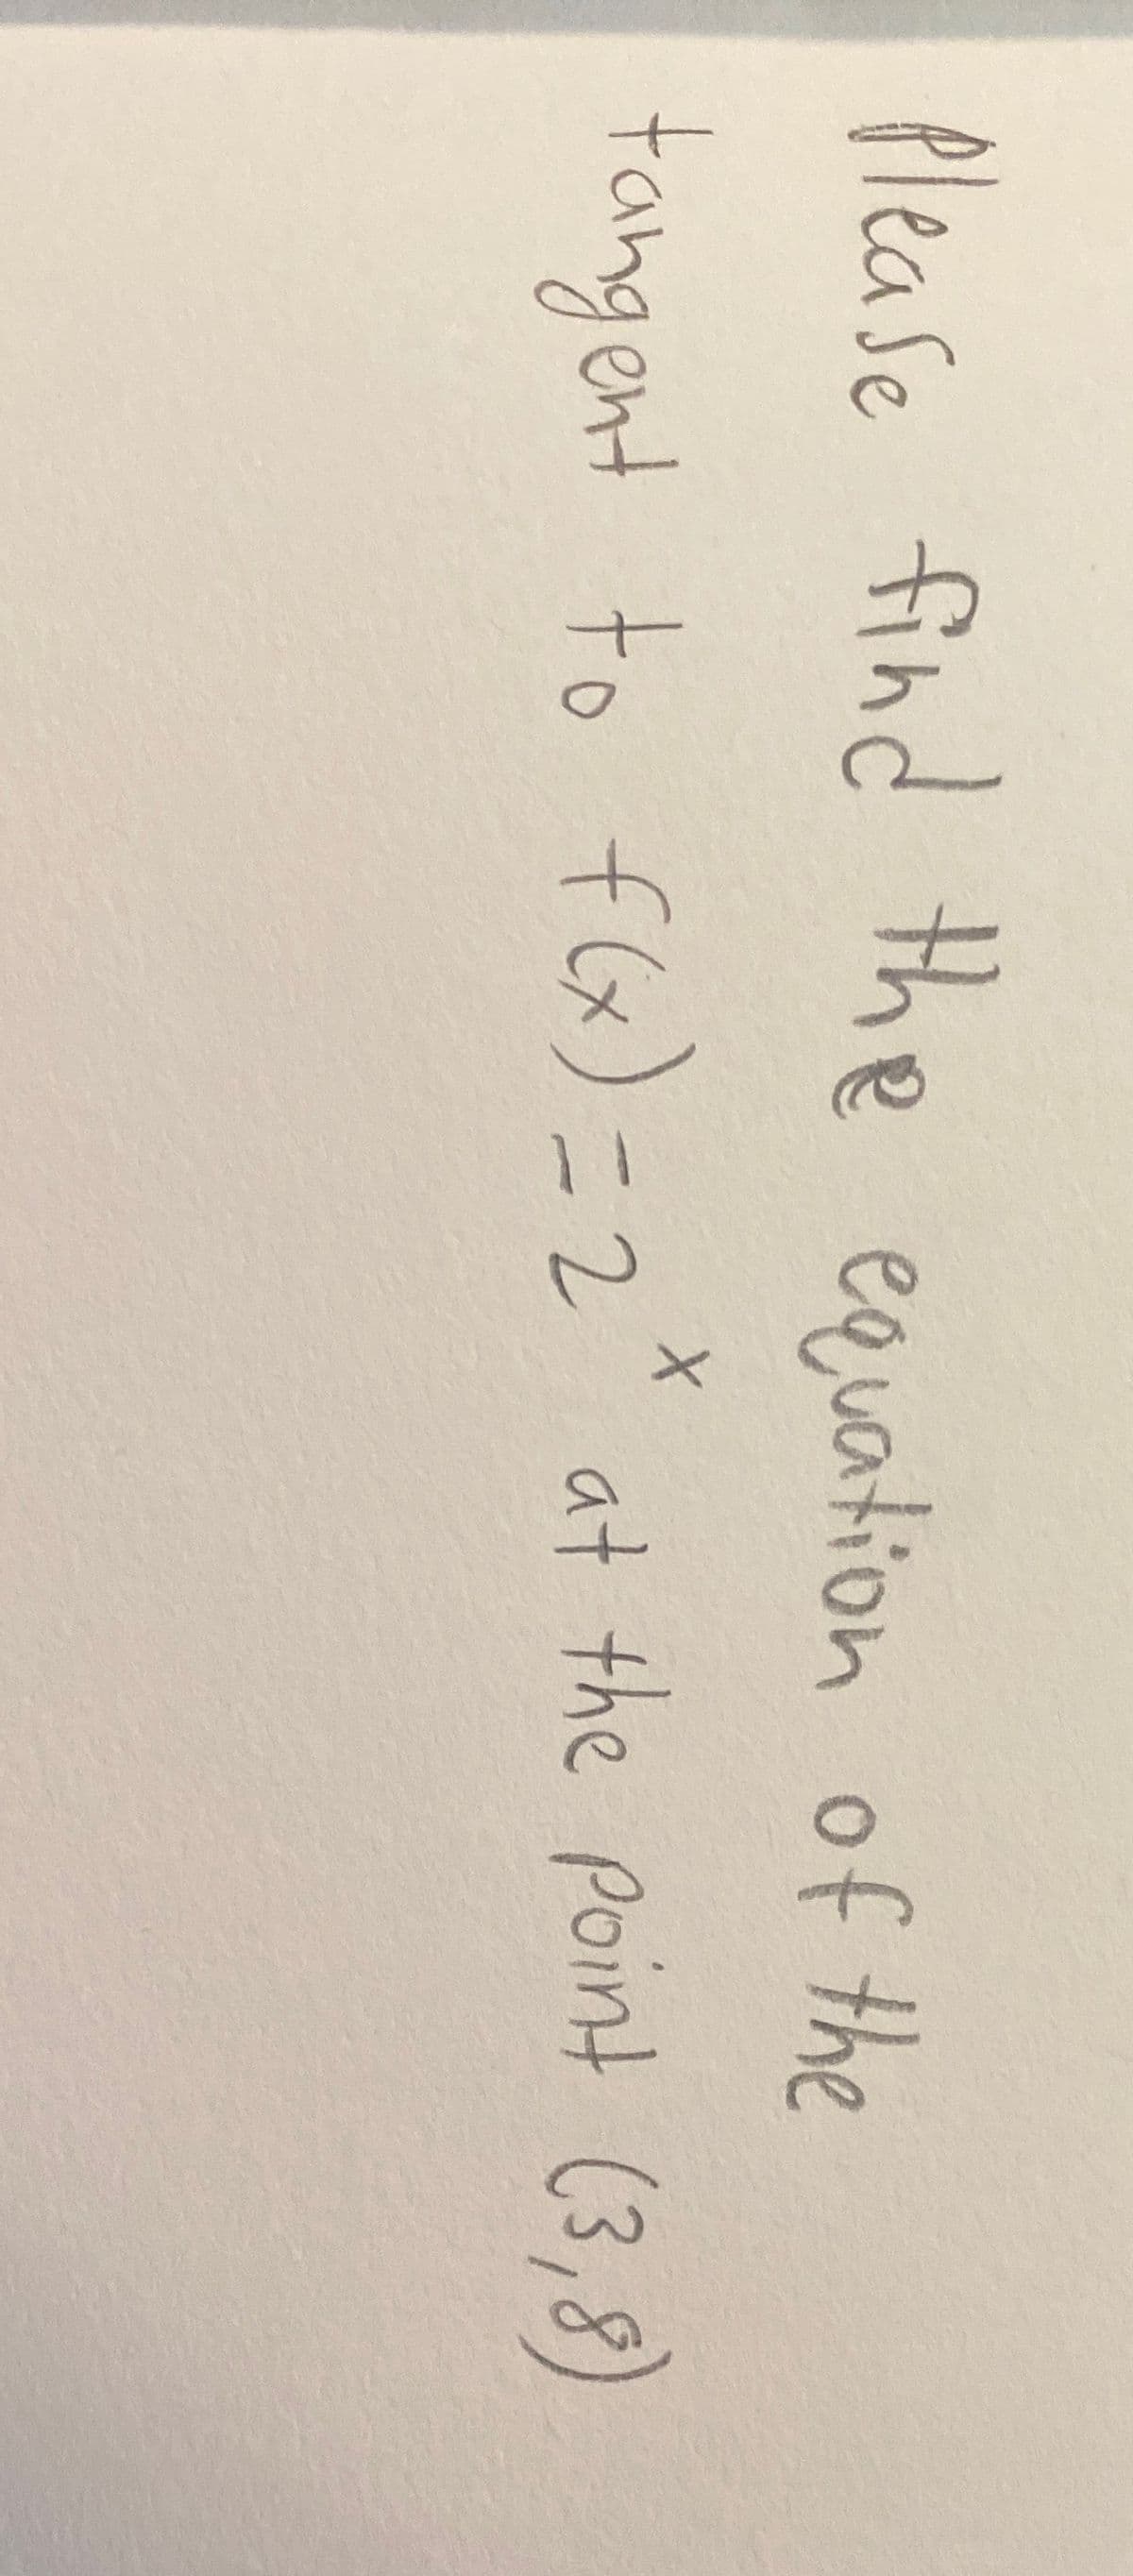 Please find the equation of the
tangent to f(x) = 2^x at the point (3,8)